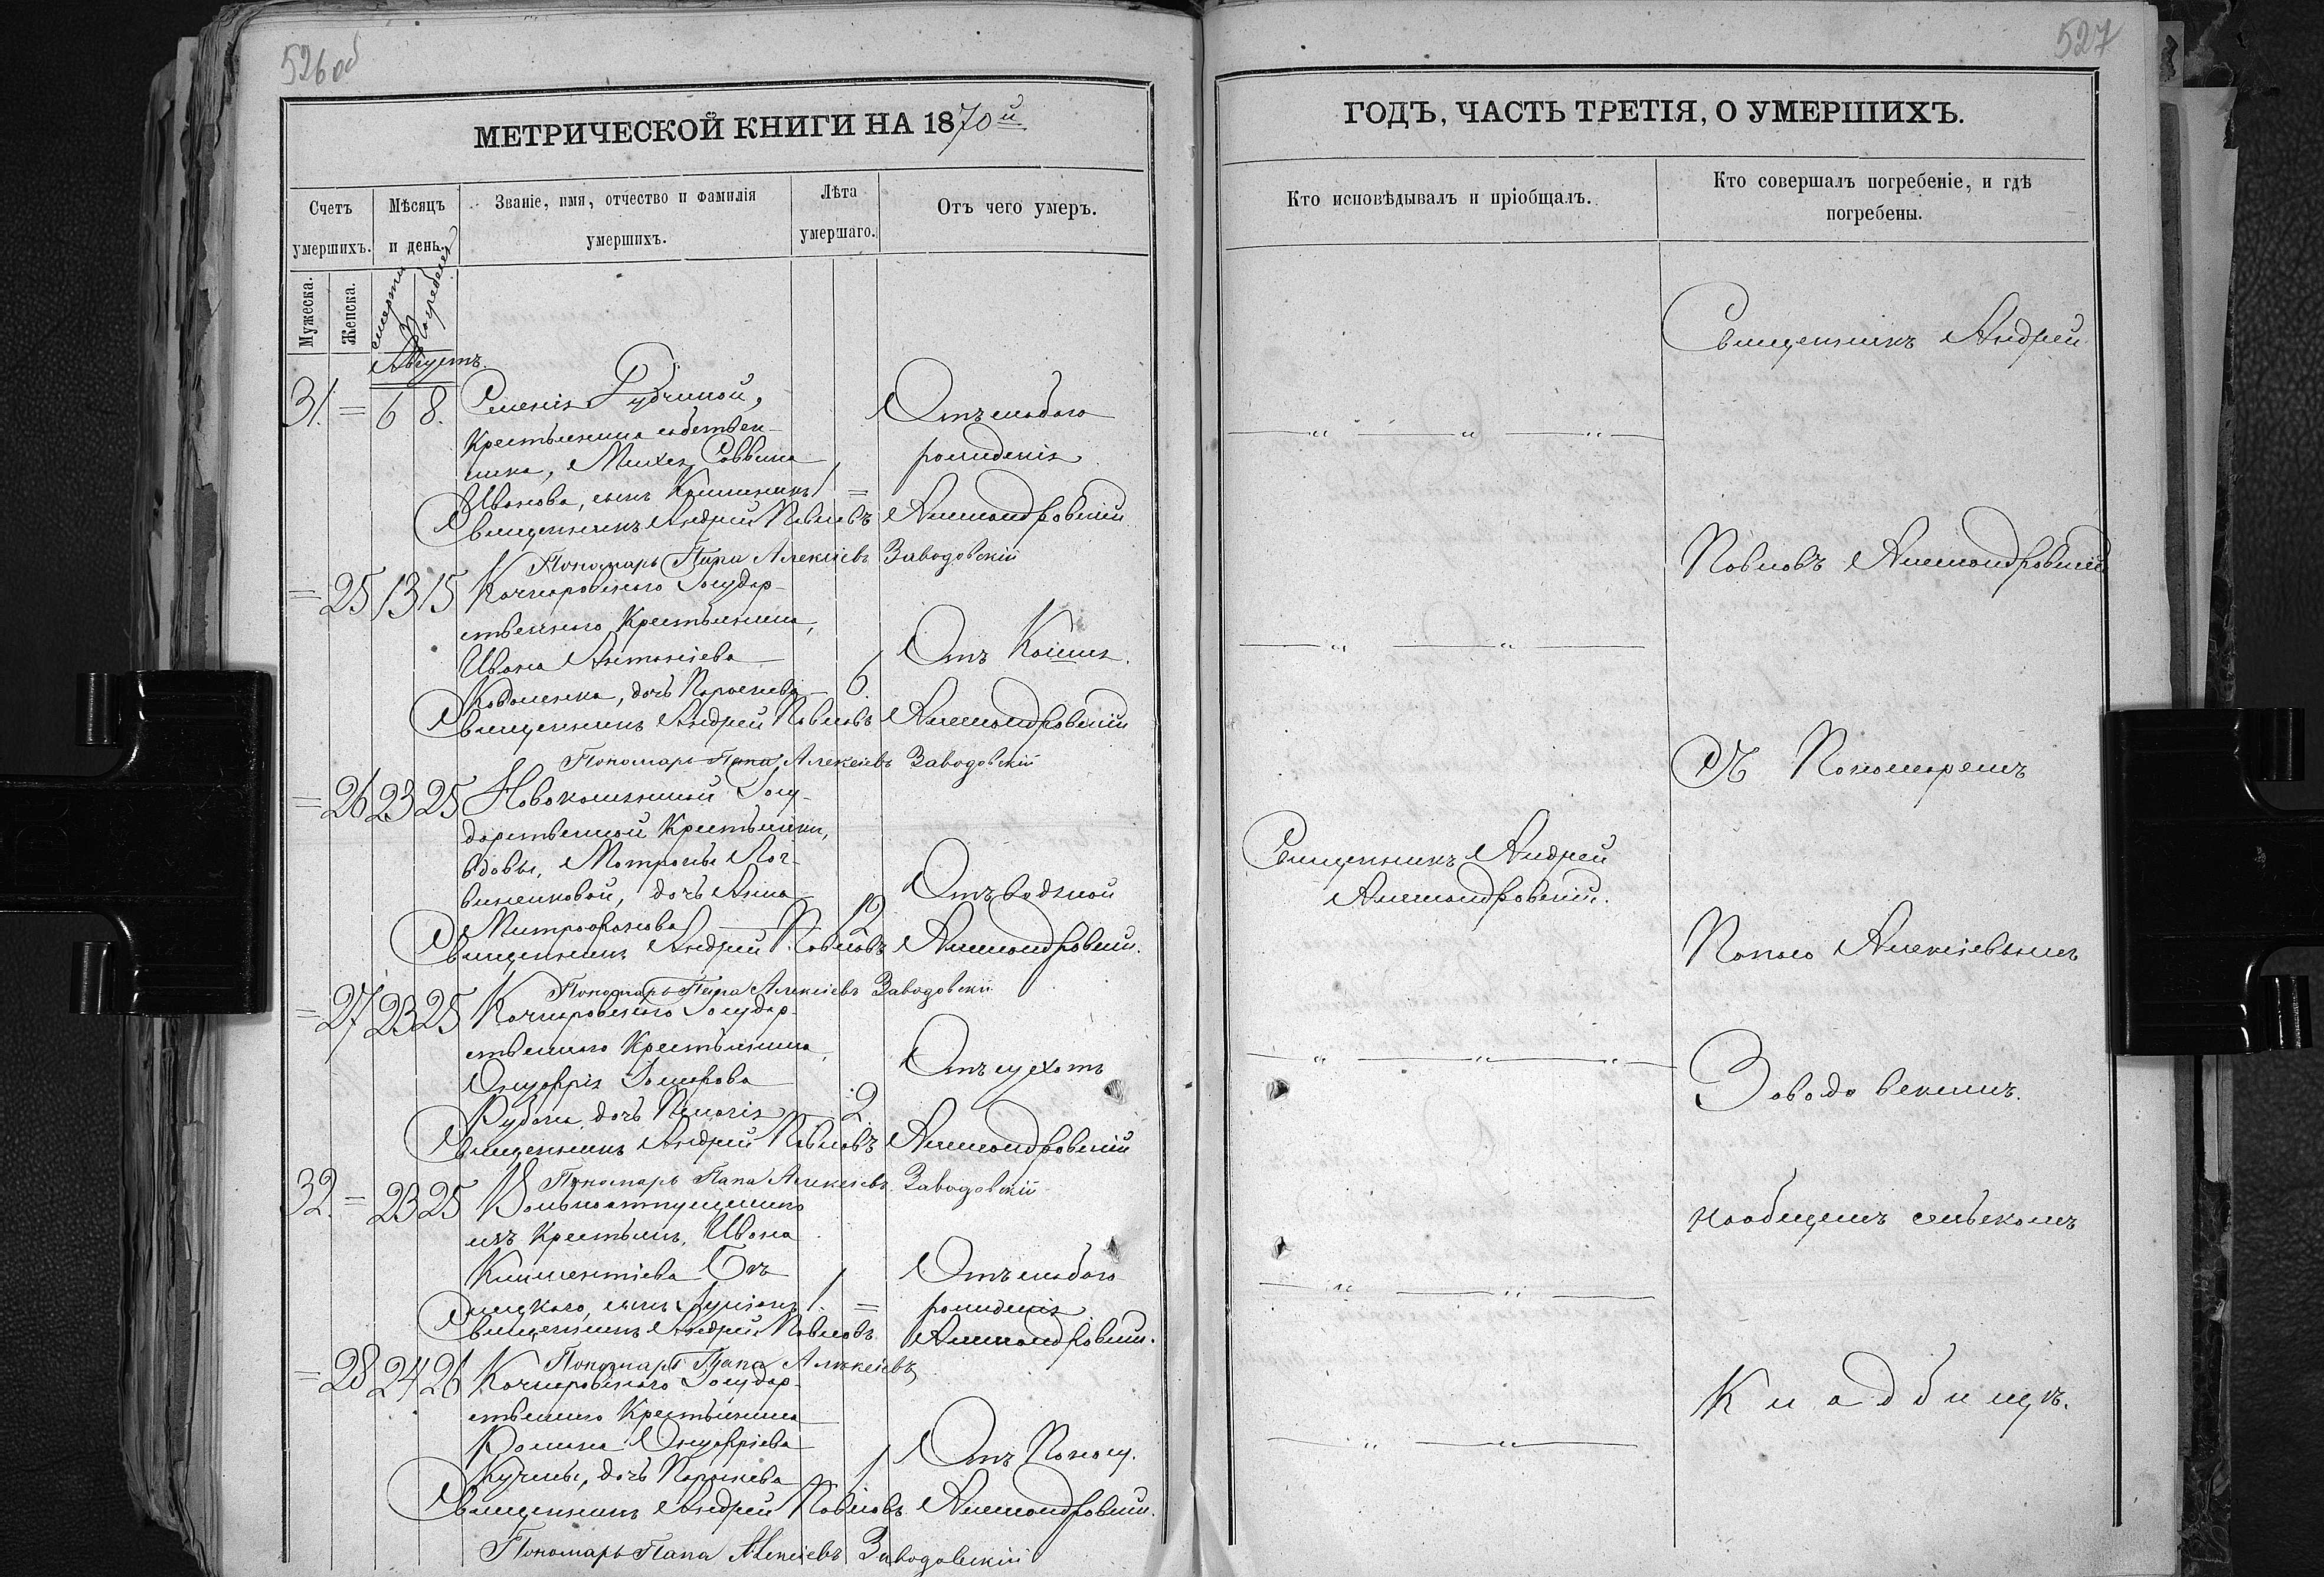 526 об
МЕТРИЧЕСКОЙ КНИГИ НА 1870й
Счетъ умершихъ.
Мѣсяцъ и день.
Званіе, имя, отчество и фамилія умершихъ.
Лѣта умершаго.
Отъ чего умеръ.
Мужеска.
Женска.
смерти
погребен
Августъ.
31. = 6 8.
Крестьянина собствен-
ника,
Иванова, сынъ 1 =
Отъ слабаго
рожденія
Священникъ Андрей Павловъ Александровскій
Пономарь Папа Алексіевъ Заводовскій
= 25 13 15 Государ-
ственнаго Крестьянина,
Ивана Антоніева
дочь Параскева 6.
Отъ
Священникъ Андрей Павловъ Александровскій
Пономарь Папа Алексіевъ Заводовскій
= 26 23 25 Госу-
дарственной Крестьянки,
вдовы, Матроны Лог-
виненковой, дочь Анна
Митрофанова 19
Отъ водяной
Священникъ Андрей Павловъ Александровскій.
Пономарь Папа Алексіевъ Заводовскій
= 27 23 25 Государ-
ственнаго Крестьянина,
Онуфрія
дочь Пелагія 2.
Отъ сухотъ
Священникъ Андрей Павловъ Александровскій
Пономарь Папа Алексіевъ Заводовскій
32. = 23 25 Вольноотпущенника
изъ Крестьянъ, Ивана
Климентіева
сынъ 1. =
Отъ слабаго
рожденія
Священникъ Андрей Павловъ Александровскій.
Пономарь Папа Алексіевъ
= 28 24 26 Государ-
ственнаго Крестьянина
Романа Онуфріева
дочь Параскева 1
Отъ
Священникъ Андрей Павловъ Александровскій.
Пономарь Папа Алексіевъ Заводовскій
527
ГОДЪ, ЧАСТЬ ТРЕТІЯ, О УМЕРШИХЪ.
Кто исповѣдывалъ и пріобщалъ.
Кто совершалъ погребеніе, и гдѣ
погребены.
Священникъ Андрей
Павловъ Александровскій
съ Пономаремъ
Священникъ Андрей
Александровскій.
Папою Алексіевымъ
Заводовскимъ.
на общемъ сельскомъ
Кладбищѣ.